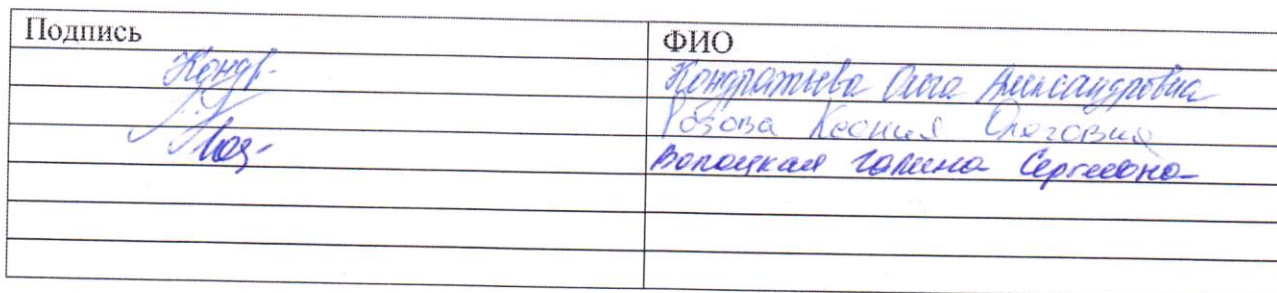 Подпись ФИО
Кондр- Кондратьева Ольга Александровна
Розова Ксения Олеговна
Волоцкая Галина Сергеевна